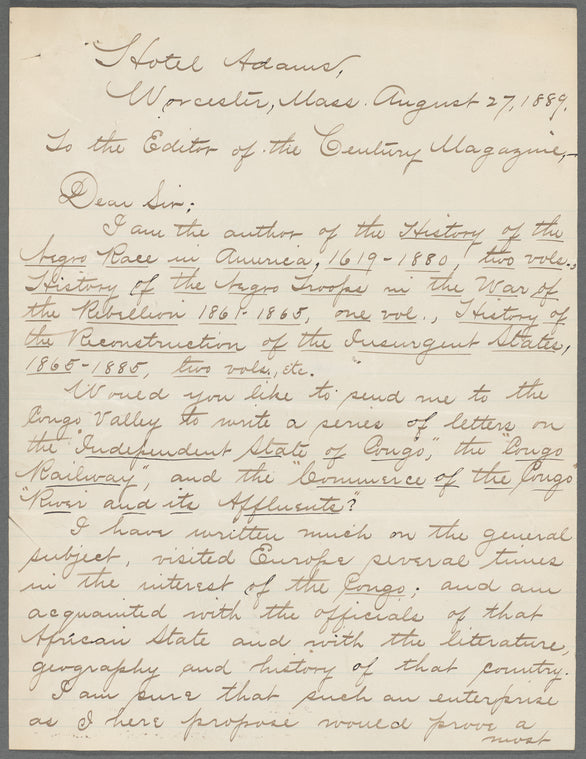 Hotel Adams,
Worcester, Mass. August 27, 1889.
To the Editor of the Century Magazine,—
Dear Sir:
I am the author of the History of the
Negro Race in America, 1619-1880, two vols.,
History of the Negro Troops in the War of
the Rebellion 1861-1865, one vol., History of
the Reconstruction of the Insurgent States,
1865-1885, two vols., etc.
Would you like to send me to the
Congo Valley to write a series of letters on
the "Independent State of Congo", the "Congo
Railway", and the "Commerce of the Congo"
"River and its Affluents"?
I have written much on the general
subject, visited Europe several times
in the interest of the Congo; and am
acquainted with the officials of that
African State and with the literature,
geography and history of that country.
I am sure that such an enterprise
as I here propose would prove a
most